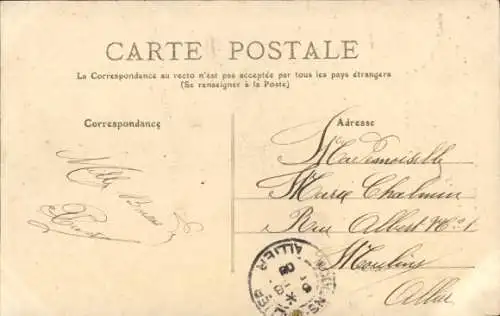 CARTE POSTALE
La Correspondance au recto n'est pas acceptée par tous les pays étrangers
(Se renseigner à la Poste)
Correspondance
Adresse
Mademoiselle
Marie Chalmin
Rue Albert No 1
Moulins
Allier
ALLIER